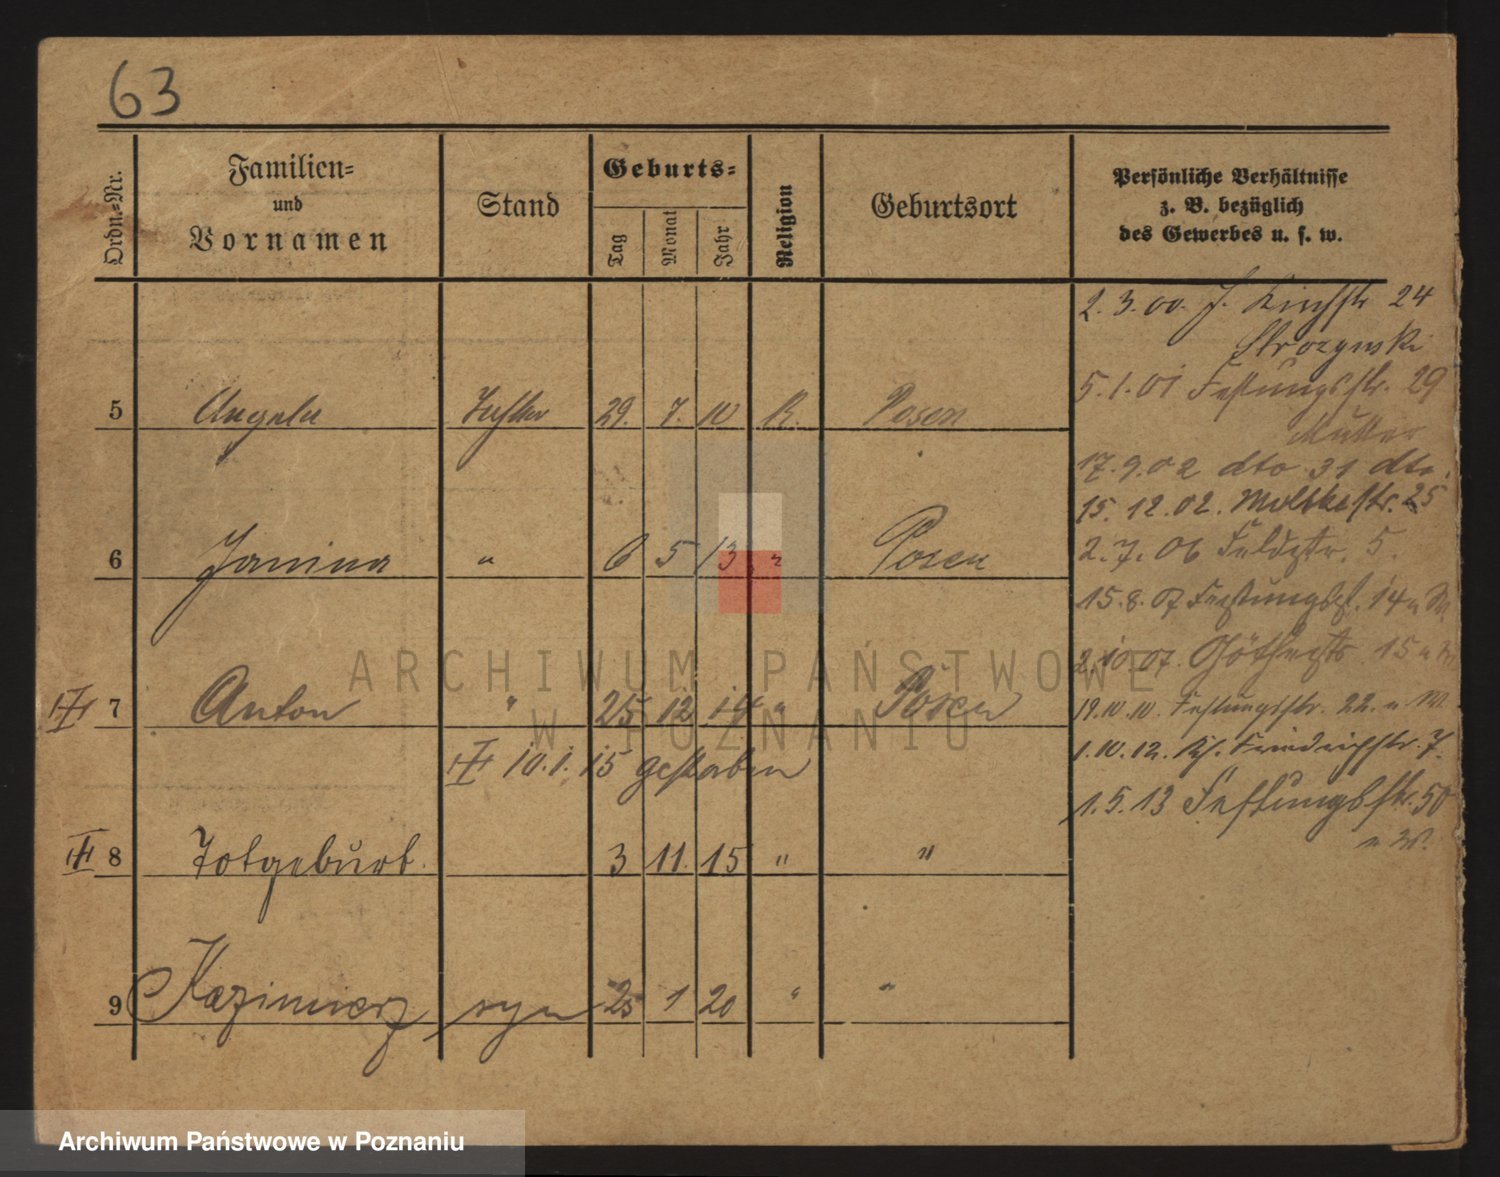 63
Ordn.-Nr.
Familien-
und
Vornamen
Stand
Geburts-
Tag
Monat
Jahr
Religion
Geburtsort
Persönliche Verhältnisse
z. B. bezüglich
des Gewerbes u. s. w.
2. 3. 00. 24
Strozynski
5. 1. 01 Festungsstr. 29
Mutter
5 Angela Tochter 29. 7. 10 K. Posen
17. 9. 02 dto 31 dto.
15. 12. 02. Moltkestr. 25
6 Janina " 6 5 13 " Posen
2. 7. 06 Feldstr. 5.
15. 8. 07 Festungsst. 14 u W.
2. 10. 07. 15 u W
7 Anton " 25 12 14 " Posen
19. 10. 10. Festungsstr. 22. u W.
10. 1. 15 gestorben
1. 10. 12. Friedrichstr. 7.
1. 5. 13 Festungsstr. 50
u W.
8 Totgeburt. 3 11. 15 " "
9 Kazimierz syn 25 1 20 " "
ARCHIWUM PAŃSTWOWE
W POZNANIU
Archiwum Państwowe w Poznaniu